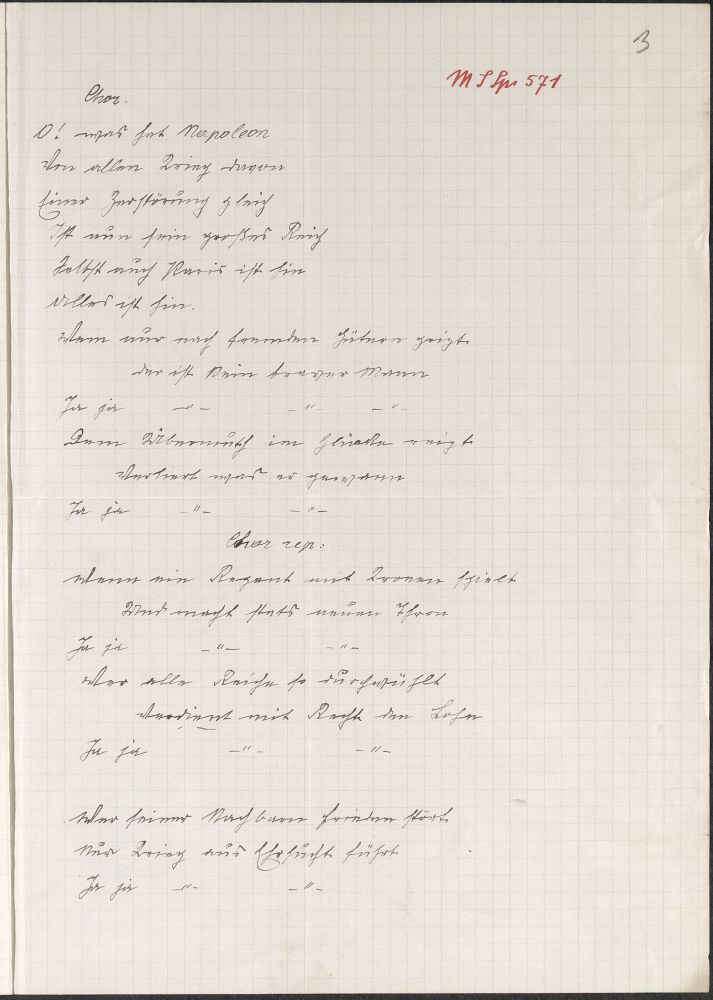 3
M S Spr 571
Chor.
O! was hat Napoleon
Von allen Krieg davon
Einer Zerstörung gleich
Ist nun sein großes Reich
Selbst auch Paris ist hin
Alles ist hin.
Wem nur nach fremden Gütern geizt
der ist kein braver Mann
Ja ja — " — — " — — " —
Dem Übermuth im Glücke reizt
Verliert was er gewann
Ja ja — " — — " —
Chor rep:
Wenn ein Regent mit Kronen spielt
Und macht stets neuen Thron
Ja ja — " — — " —
Wer alle Reiche so durchwühlt
Verdient mit Recht den Lohn
Ja ja — " — — " —
Wer seiner Nachbarn Frieden stört
Nur Krieg aus Ehrsucht führt
Ja ja — " — — " —